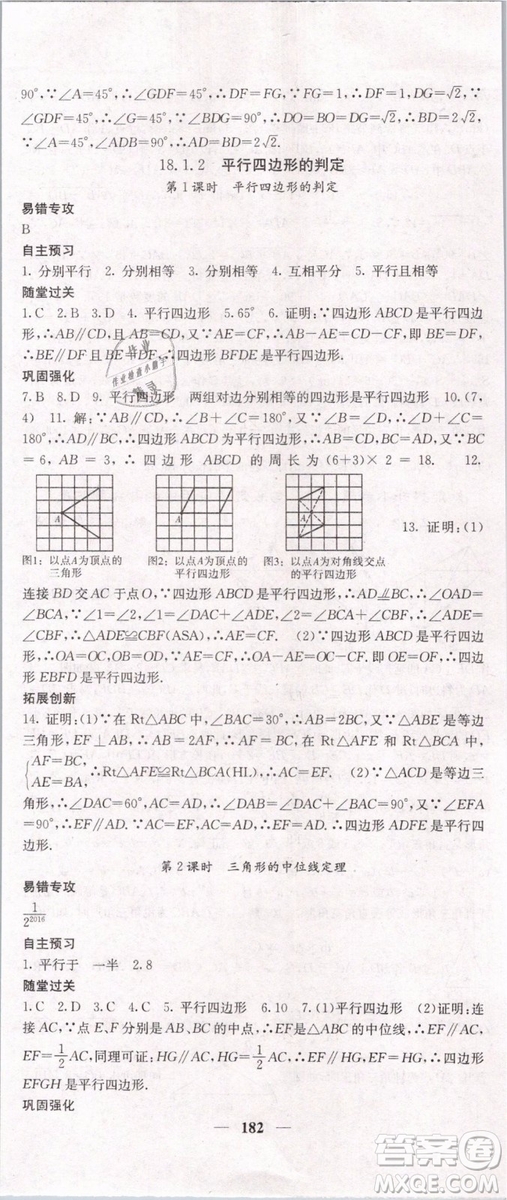 90°,∵∠A=45°,∴∠GDF=45°,∴DF=FG,∵FG=1,∴DF=1,DG=√2,∵
∠GDF=45°,∴∠G=45°,∵∠BDG=90°,∴DO=BO=DG=√2,∴BD=2√2,
∵∠A=45°,∠ADB=90°,∴AD=BD=2√2.
18.1.2 平行四边形的判定
第1课时 平行四边形的判定
易错专攻
B
自主预习
1. 分别平行 2. 分别相等 3. 分别相等 4. 互相平分 5. 平行且相等
随堂过关
1. C 2. B 3. D 4. 平行四边形 5. 65° 6. 证明:∵四边形ABCD是平行四边
形,∴AB∥CD,且AB=CD,又∵AE=CF,∴AB-AE=CD-CF,即BE=DF,
∴BE∥DF且BE=DF,∴四边形BFDE是平行四边形.
巩固强化
7. B 8. D 9. 平行四边形 两组对边分别相等的四边形是平行四边形 10. (7,
4) 11. 解:∵AB∥CD,∴∠B+∠C=180°,又∵∠B=∠D,∴∠C+∠D=
180°,∴AD∥BC,∴四边形ABCD是平行四边形,∴AB=CD=3,AD=BC
=6,AB=3,∴四边形ABCD的周长为(6+3)×2=18. 12.
A A A
13. 证明:(1)
图1:以点A为顶点的三角形 图2:以点A为顶点的平行四边形 图3:以点A为对角线交点的平行四边形
连接BD交AC于点O,∵四边形ABCD是平行四边形,∴AD⫽BC,∴∠OAD=
∠BCA,∵∠1=∠2,∴∠1+∠DAC=∠2+∠BCA,∴∠DAE=∠BCF,
∠CBF,∴△ADE≌△CBF(ASA),∴DE=BF;(2)∵四边形ABCD是平行四边
形,∴OA=OC,OB=OD,∵AE=CF,∴OA+AE=OC+CF,∴OE=OF,∴四边
形EBFD是平行四边形.
拓展创新
14. 证明:(1)∵在Rt△ABC中,∠BAC=30°,∴AB=2BC,又∵△ABE是等边
三角形,EF⊥AB,∴AB=2AF,∴AF=BC,在Rt△AFE和Rt△BCA中,
{AF=BC,AE=BA,∴Rt△AFE≌Rt△BCA(HL),∴AC=EF;(2)∵△ACD是等边三
角形,∴∠DAC=60°,AC=AD,∴∠DAB=∠DAC+∠BAC=90°,又∵∠EFA
=90°,∴EF∥AD.∵AC=EF,AC=AD,∴EF=AD.∴四边形ADFE是平行四
边形.
第2课时 三角形的中位线定理
易错专攻
1/2²⁰¹⁶
自主预习
1. 平行于 一半 2. 8
随堂过关
1. C 2. D 3. C 4. A 5. 平行四边形 6. 10 7. (1)平行四边形 (2)证明:连
接AC,∵点E、F分别是AB、BC的中点,∴EF是△ABC的中位线,∴EF∥AC,
EF=1/2AC,同理可证:HG∥AC,HG=1/2AC,∴EF∥HG,EF=HG,∴四边形
EFGH是平行四边形.
巩固强化
182
答案圈